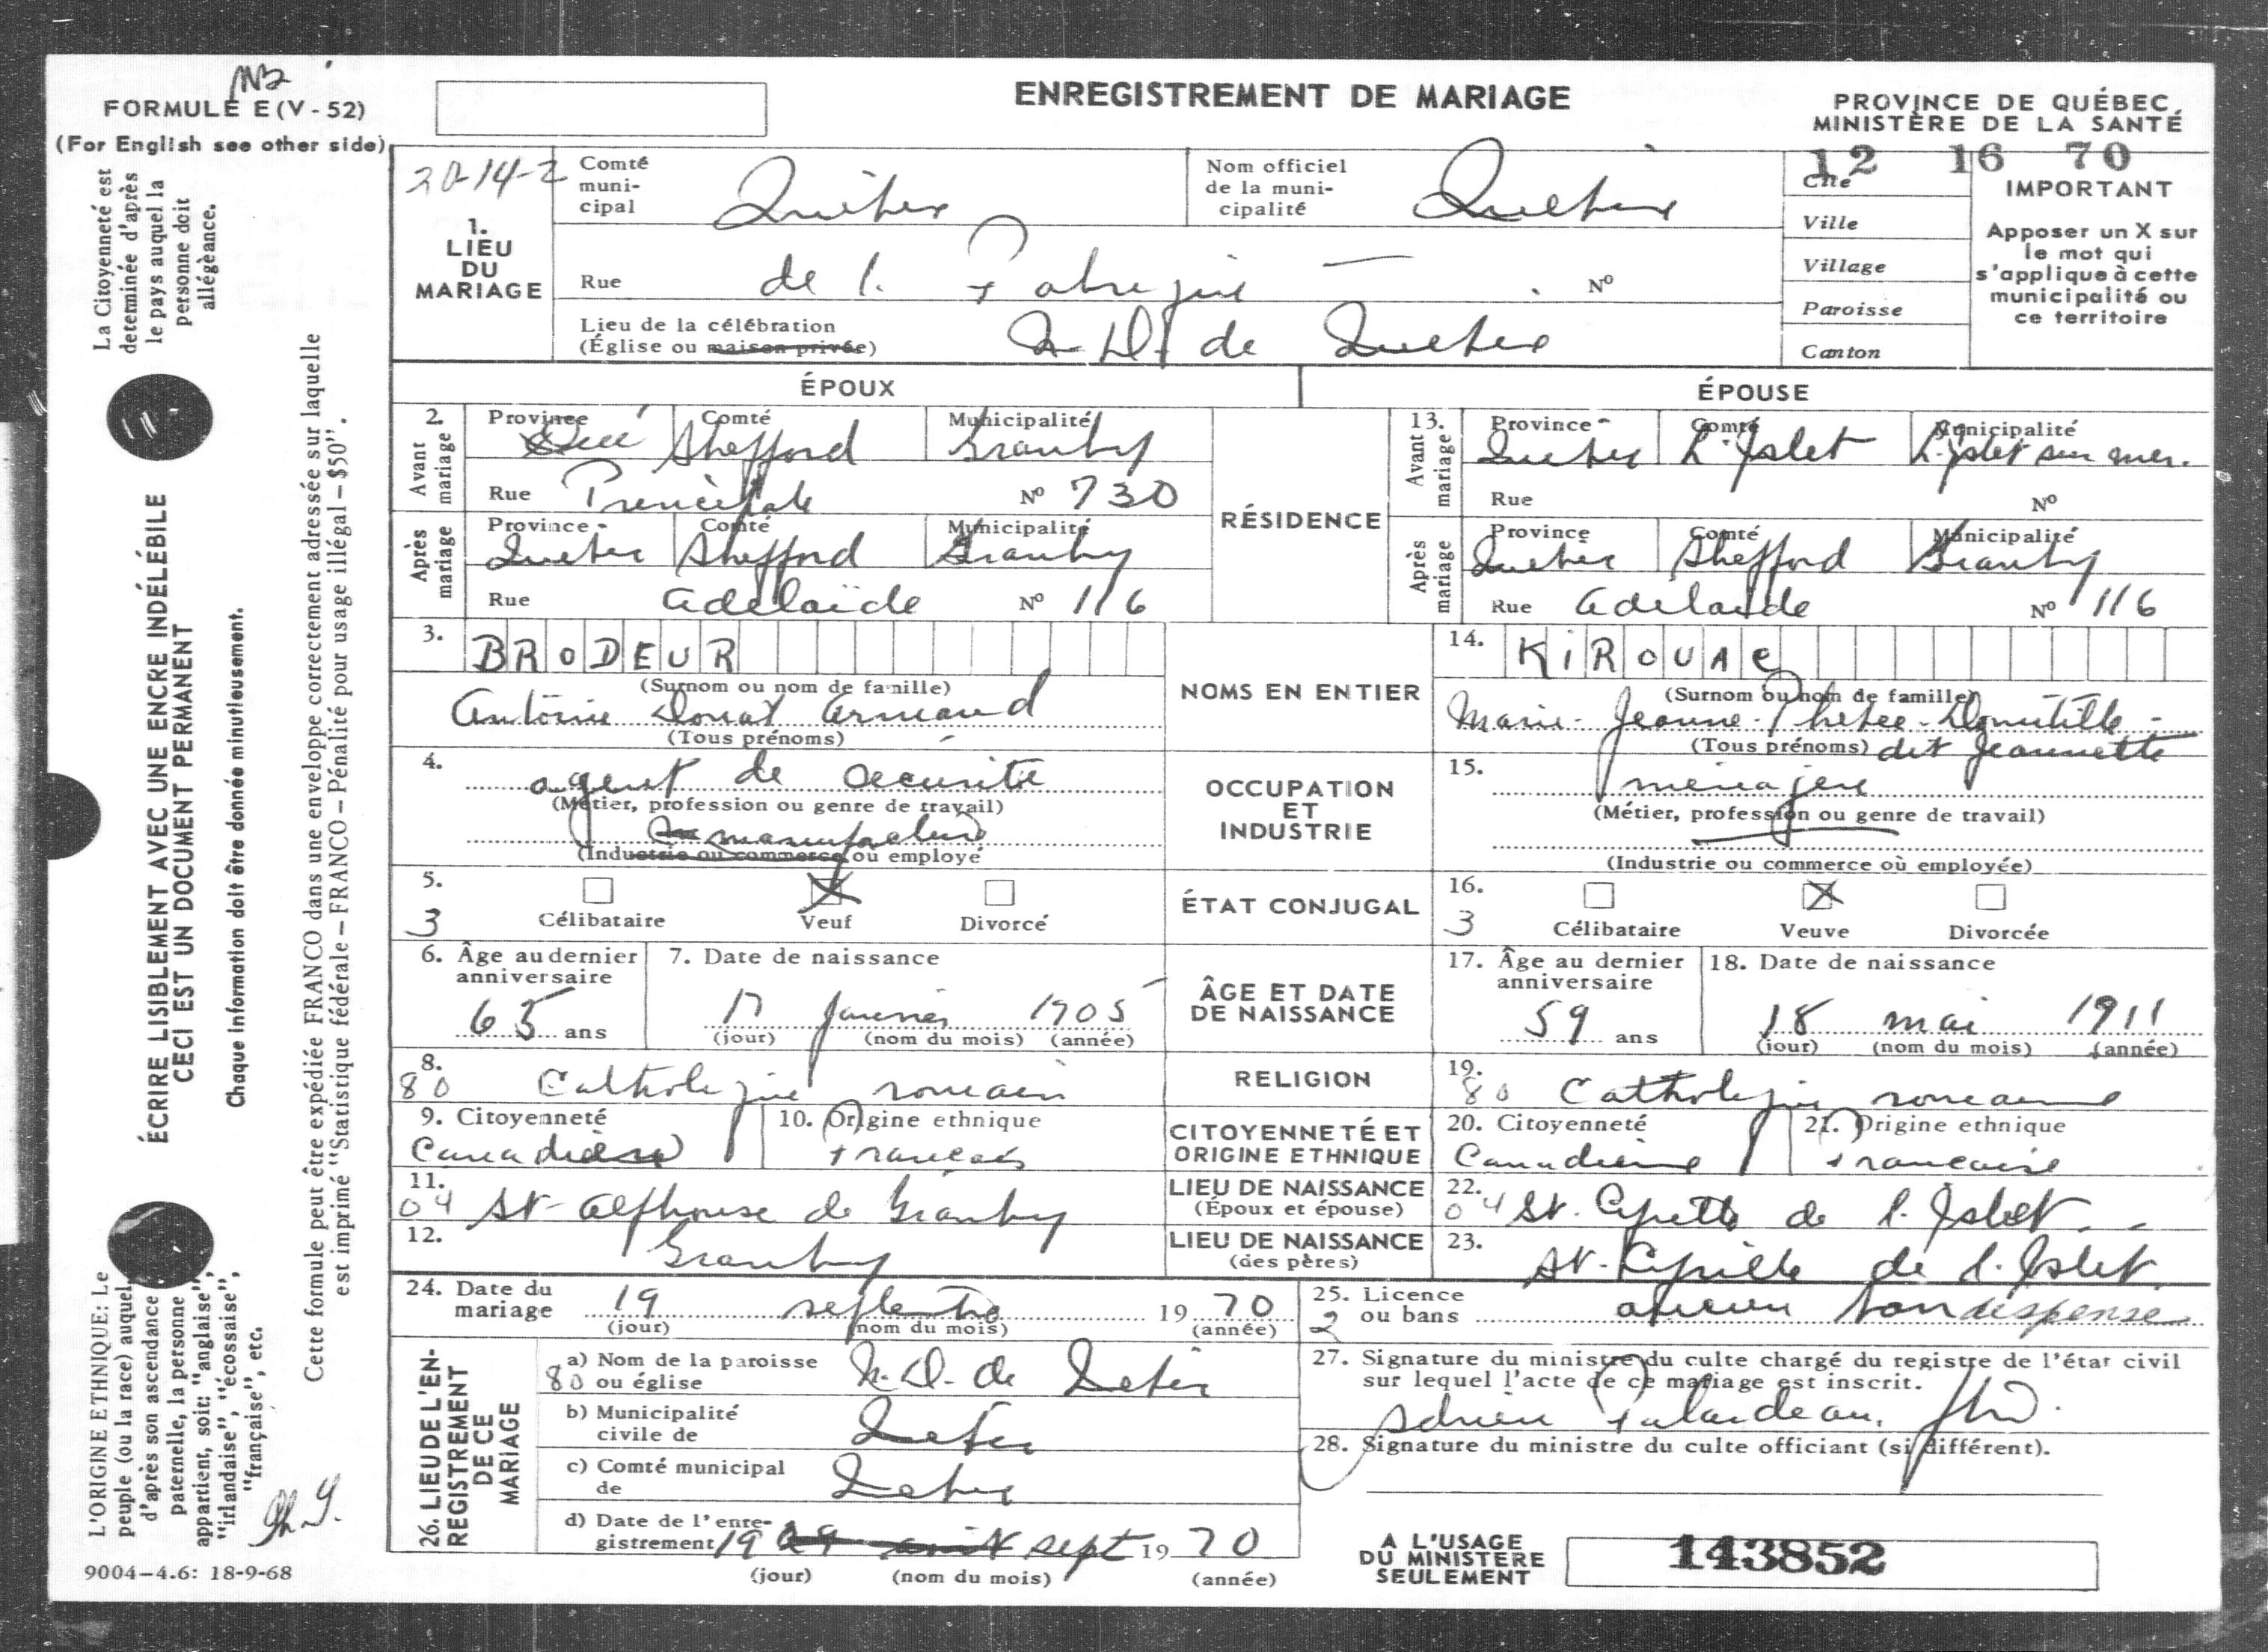 N32
FORMULE E (V - 52)
(For English see other side)
ENREGISTREMENT DE MARIAGE
PROVINCE DE QUÉBEC
MINISTÈRE DE LA SANTÉ
12 16 70
20-14-2
1.
LIEU
DU
MARIAGE
Comté
muni-
cipal
Québec
Nom officiel
de la muni-
cipalité
Québec
Cité
Ville
Village
Paroisse
Canton
IMPORTANT
Apposer un X sur
le mot qui
s'applique à cette
municipalité ou
ce territoire
Rue de la Fabrique Nº
Lieu de la célébration
(Église ou maison privée)
N. D. de Québec
ÉPOUX
ÉPOUSE
2.
Avant
mariage
Province Comté Municipalité
Qué Shefford Granby
Rue Principale Nº 730
Après
mariage
Province Comté Municipalité
Québec Shefford Granby
Rue Adélaïde Nº 116
RÉSIDENCE
13.
Avant
mariage
Province Comté Municipalité
Québec L'Islet L'Islet sur mer.
Rue Nº
Après
mariage
Province Comté Municipalité
Québec Shefford Granby
Rue Adelaide Nº 116
3.
BRODEUR
(Surnom ou nom de famille)
Antoine Donat Armand
(Tous prénoms)
NOMS EN ENTIER
14.
KIROUAC
(Surnom ou nom de famille)
Marie-Jeanne-Thérèse-Domitille-
(Tous prénoms) dit Jeannette
4.
agent de sécurité
(Métier, profession ou genre de travail)
manufacture
(Industrie ou commerce où employé
OCCUPATION
ET
INDUSTRIE
15.
ménagère
(Métier, profession ou genre de travail)
(Industrie ou commerce où employée)
5.
3
Célibataire Veuf Divorcé
ÉTAT CONJUGAL
16.
3
Célibataire Veuve Divorcée
6. Âge au dernier
anniversaire
65 ans
7. Date de naissance
17 janvier 1905
(jour) (nom du mois) (année)
ÂGE ET DATE
DE NAISSANCE
17. Âge au dernier
anniversaire
59 ans
18. Date de naissance
18 mai 1911
(jour) (nom du mois) (année)
8.
80 Catholique romain
RELIGION
19.
80 Catholique romaine
9. Citoyenneté
Canadien
10. Origine ethnique
français
CITOYENNETÉ ET
ORIGINE ETHNIQUE
20. Citoyenneté
Canadienne
21. Origine ethnique
française
11.
04 St-Alphonse de Granby
LIEU DE NAISSANCE
(Époux et épouse)
22.
04 St. Cyrille de l'Islet
12.
Granby
LIEU DE NAISSANCE
(des pères)
23.
St-Cyrille de l'Islet
24. Date du
mariage
19 septembre 1970
(jour) (nom du mois) (année)
25. Licence
ou bans
2
aucun ban dispense
26. LIEU DE L'EN-
REGISTREMENT
DE CE
MARIAGE
a) Nom de la paroisse
80 ou église
N. D. de Québec
b) Municipalité
civile de
Québec
c) Comté municipal
de
Québec
d) Date de l'enre-
gistrement 19 sept 1970
(jour) (nom du mois) (année)
27. Signature du ministre du culte chargé du registre de l'état civil
sur lequel l'acte de ce mariage est inscrit.
Adrien Falardeau,
28. Signature du ministre du culte officiant (si différent).
A L'USAGE
DU MINISTERE
SEULEMENT
143852
La Citoyenneté est
determinée d'après
le pays auquel la
personne doit
allégeance.
ÉCRIRE LISIBLEMENT AVEC UNE ENCRE INDÉLÉBILE
CECI EST UN DOCUMENT PERMANENT
Chaque information doit être donnée minutieusement.
Cette formule peut être expédiée FRANCO dans une enveloppe correctement adressée sur laquelle
est imprimé "Statistique fédérale – FRANCO – Pénalité pour usage illégal – $50".
L'ORIGINE ETHNIQUE: Le
peuple (ou la race) auquel,
d'après son ascendance
paternelle, la personne
appartient, soit: "anglaise",
"irlandaise", "écossaise",
"française", etc.
9004–4.6: 18-9-68